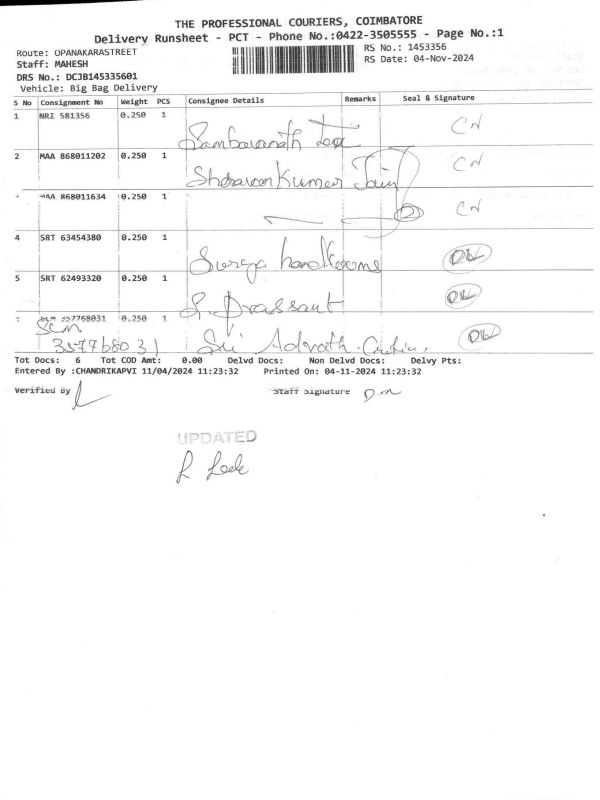 THE PROFESSIONAL COURIERS, COIMBATORE
Delivery Runsheet - PCT - Phone No.:0422-3505555 - Page No.:1
Route: OPANAKARASTREET
RS No.: 1453356
Staff: MAHESH
RS Date: 04-Nov-2024
DRS No.: DCJB145335601
Vehicle: Big Bag Delivery
S No Consignment No Weight PCS Consignee Details Remarks Seal & Signature
1 NRI 581356 0.250 1 CN
2 MAA 868011202 0.250 1 Shravan Kumar Jain CN
MAA 868011634 0.250 1 CN
4 SRT 63454380 0.250 1 Surya handlooms DL
5 SRT 62493320 0.250 1 S. Prassant DL
357768031 0.250 1 Sri DL
SCM
357768031
Tot Docs: 6 Tot COD Amt: 0.00 Delvd Docs: Non Delvd Docs: Delvy Pts:
Entered By :CHANDRIKAPVI 11/04/2024 11:23:32 Printed On: 04-11-2024 11:23:32
Verified By Staff Signature
UPDATED